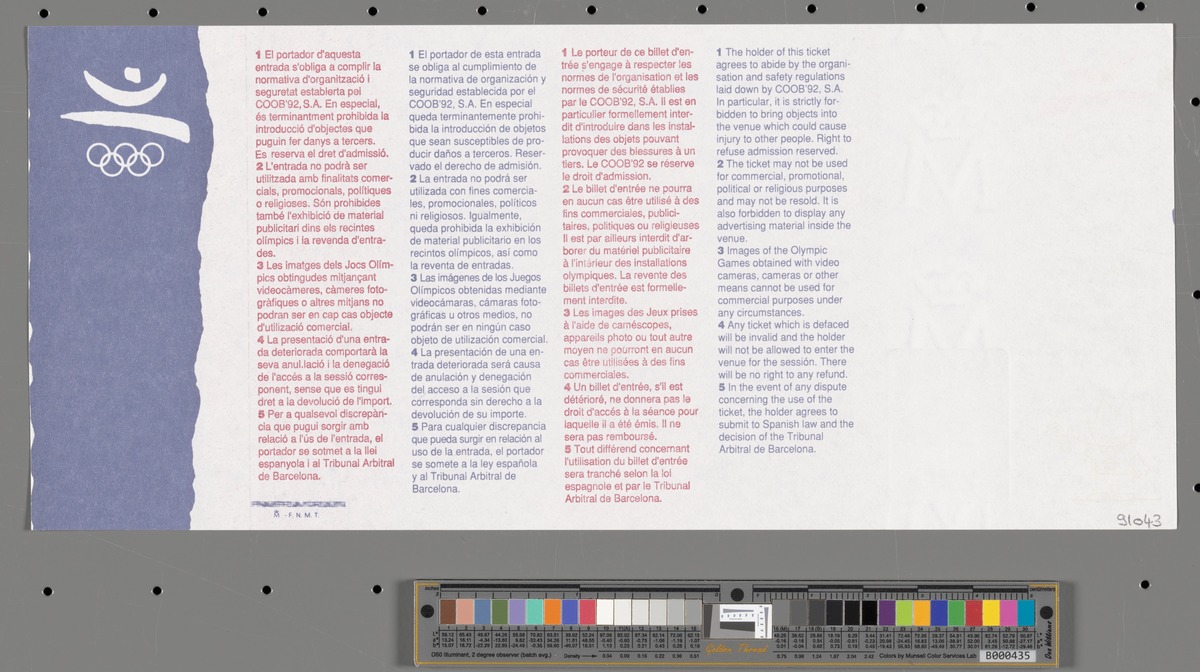 1 El portador d'aquesta
entrada s'obliga a complir la
normativa d'organització i
seguretat establerta pel
COOB'92, S.A. En especial,
és terminantment prohibida la
introducció d'objectes que
puguin fer danys a tercers.
Es reserva el dret d'admissió.
2 L'entrada no podrà ser
utilitzada amb finalitats comer-
cials, promocionals, polítiques
o religioses. Són prohibides
també l'exhibició de material
publicitari dins els recintes
olímpics i la revenda d'entra-
des.
3 Les imatges dels Jocs Olím-
pics obtingudes mitjançant
videocàmeres, càmeres foto-
gràfiques o altres mitjans no
podran ser en cap cas objecte
d'utilizació comercial.
4 La presentació d'una entra-
da deteriorada comportarà la
seva anul.lació i la denegació
de l'accés a la sessió corres-
ponent, sense que es tingui
dret a la devolució de l'import.
5 Per a qualsevol discrepàn-
cia que pugui sorgir amb
relació a l'ús de l'entrada, el
portador se sotmet a la llei
espanyola i al Tribunal Arbitral
de Barcelona.
M - F.N.M.T.
1 El portador de esta entrada
se obliga al cumplimiento de
la normativa de organización y
seguridad establecida por el
COOB'92, S.A. En especial
queda terminantemente prohi-
bida la introducción de objetos
que sean susceptibles de pro-
ducir daños a terceros. Reser-
vado el derecho de admisión.
2 La entrada no podrá ser
utilizada con fines comercia-
les, promocionales, políticos
ni religiosos. Igualmente,
queda prohibida la exhibición
de material publicitario en los
recintos olímpicos, así como
la reventa de entradas.
3 Las imágenes de los Juegos
Olímpicos obtenidas mediante
videocámaras, cámaras foto-
gráficas u otros medios, no
podrán ser en ningún caso
objeto de utilización comercial.
4 La presentación de una en-
trada deteriorada será causa
de anulación y denegación
del acceso a la sesión que
corresponda sin derecho a la
devolución de su importe.
5 Para cualquier discrepancia
que pueda surgir en relación al
uso de la entrada, el portador
se somete a la ley española
y al Tribunal Arbitral de
Barcelona.
1 Le porteur de ce billet d'en-
trée s'engage à respecter les
normes de l'organisation et les
normes de sécurité établies
par le COOB'92, S.A. Il est en
particulier formellement inter-
dit d'introduire dans les instal-
lations des objets pouvant
provoquer des blessures à un
tiers. Le COOB'92 se réserve
le droit d'admission.
2 Le billet d'entrée ne pourra
en aucun cas être utilisé à des
fins commerciales, publici-
taires, politiques ou religieuses
Il est par ailleurs interdit d'ar-
borer du matériel publicitaire
à l'intérieur des installations
olympiques. La revente des
billets d'entrée est formelle-
ment interdite.
3 Les images des Jeux prises
à l'aide de caméscopes,
appareils photo ou tout autre
moyen ne pourront en aucun
cas être utilisées à des fins
commerciales.
4 Un billet d'entrée, s'il est
détérioré, ne donnera pas le
droit d'accés à la séance pour
laquelle il a été émis. Il ne
sera pas remboursé.
5 Tout différend concernant
l'utilisation du billet d'entrée
sera tranché selon la loi
espagnole et par le Tribunal
Arbitral de Barcelona.
1 The holder of this ticket
agrees to abide by the organi-
sation and safety regulations
laid down by COOB'92, S.A.
In particular, it is strictly for-
bidden to bring objects into
the venue which could cause
injury to other people. Right to
refuse admission reserved.
2 The ticket may not be used
for commercial, promotional,
political or religious purposes
and may not be resold. It is
also forbidden to display any
advertising material inside the
venue.
3 Images of the Olympic
Games obtained with video
cameras, cameras or other
means cannot be used for
commercial purposes under
any circumstances.
4 Any ticket which is defaced
will be invalid and the holder
will not be allowed to enter the
venue for the session. There
will be no right to any refund.
5 In the event of any dispute
concerning the use of the
ticket, the holder agrees to
submit to Spanish law and the
decision of the Tribunal
Arbitral de Barcelona.
91043
inches
centimetres
Golden Thread
D50 Illuminant, 2 degree observer (batch avg.)
Density
Colors by Munsell Color Services Lab
B000435